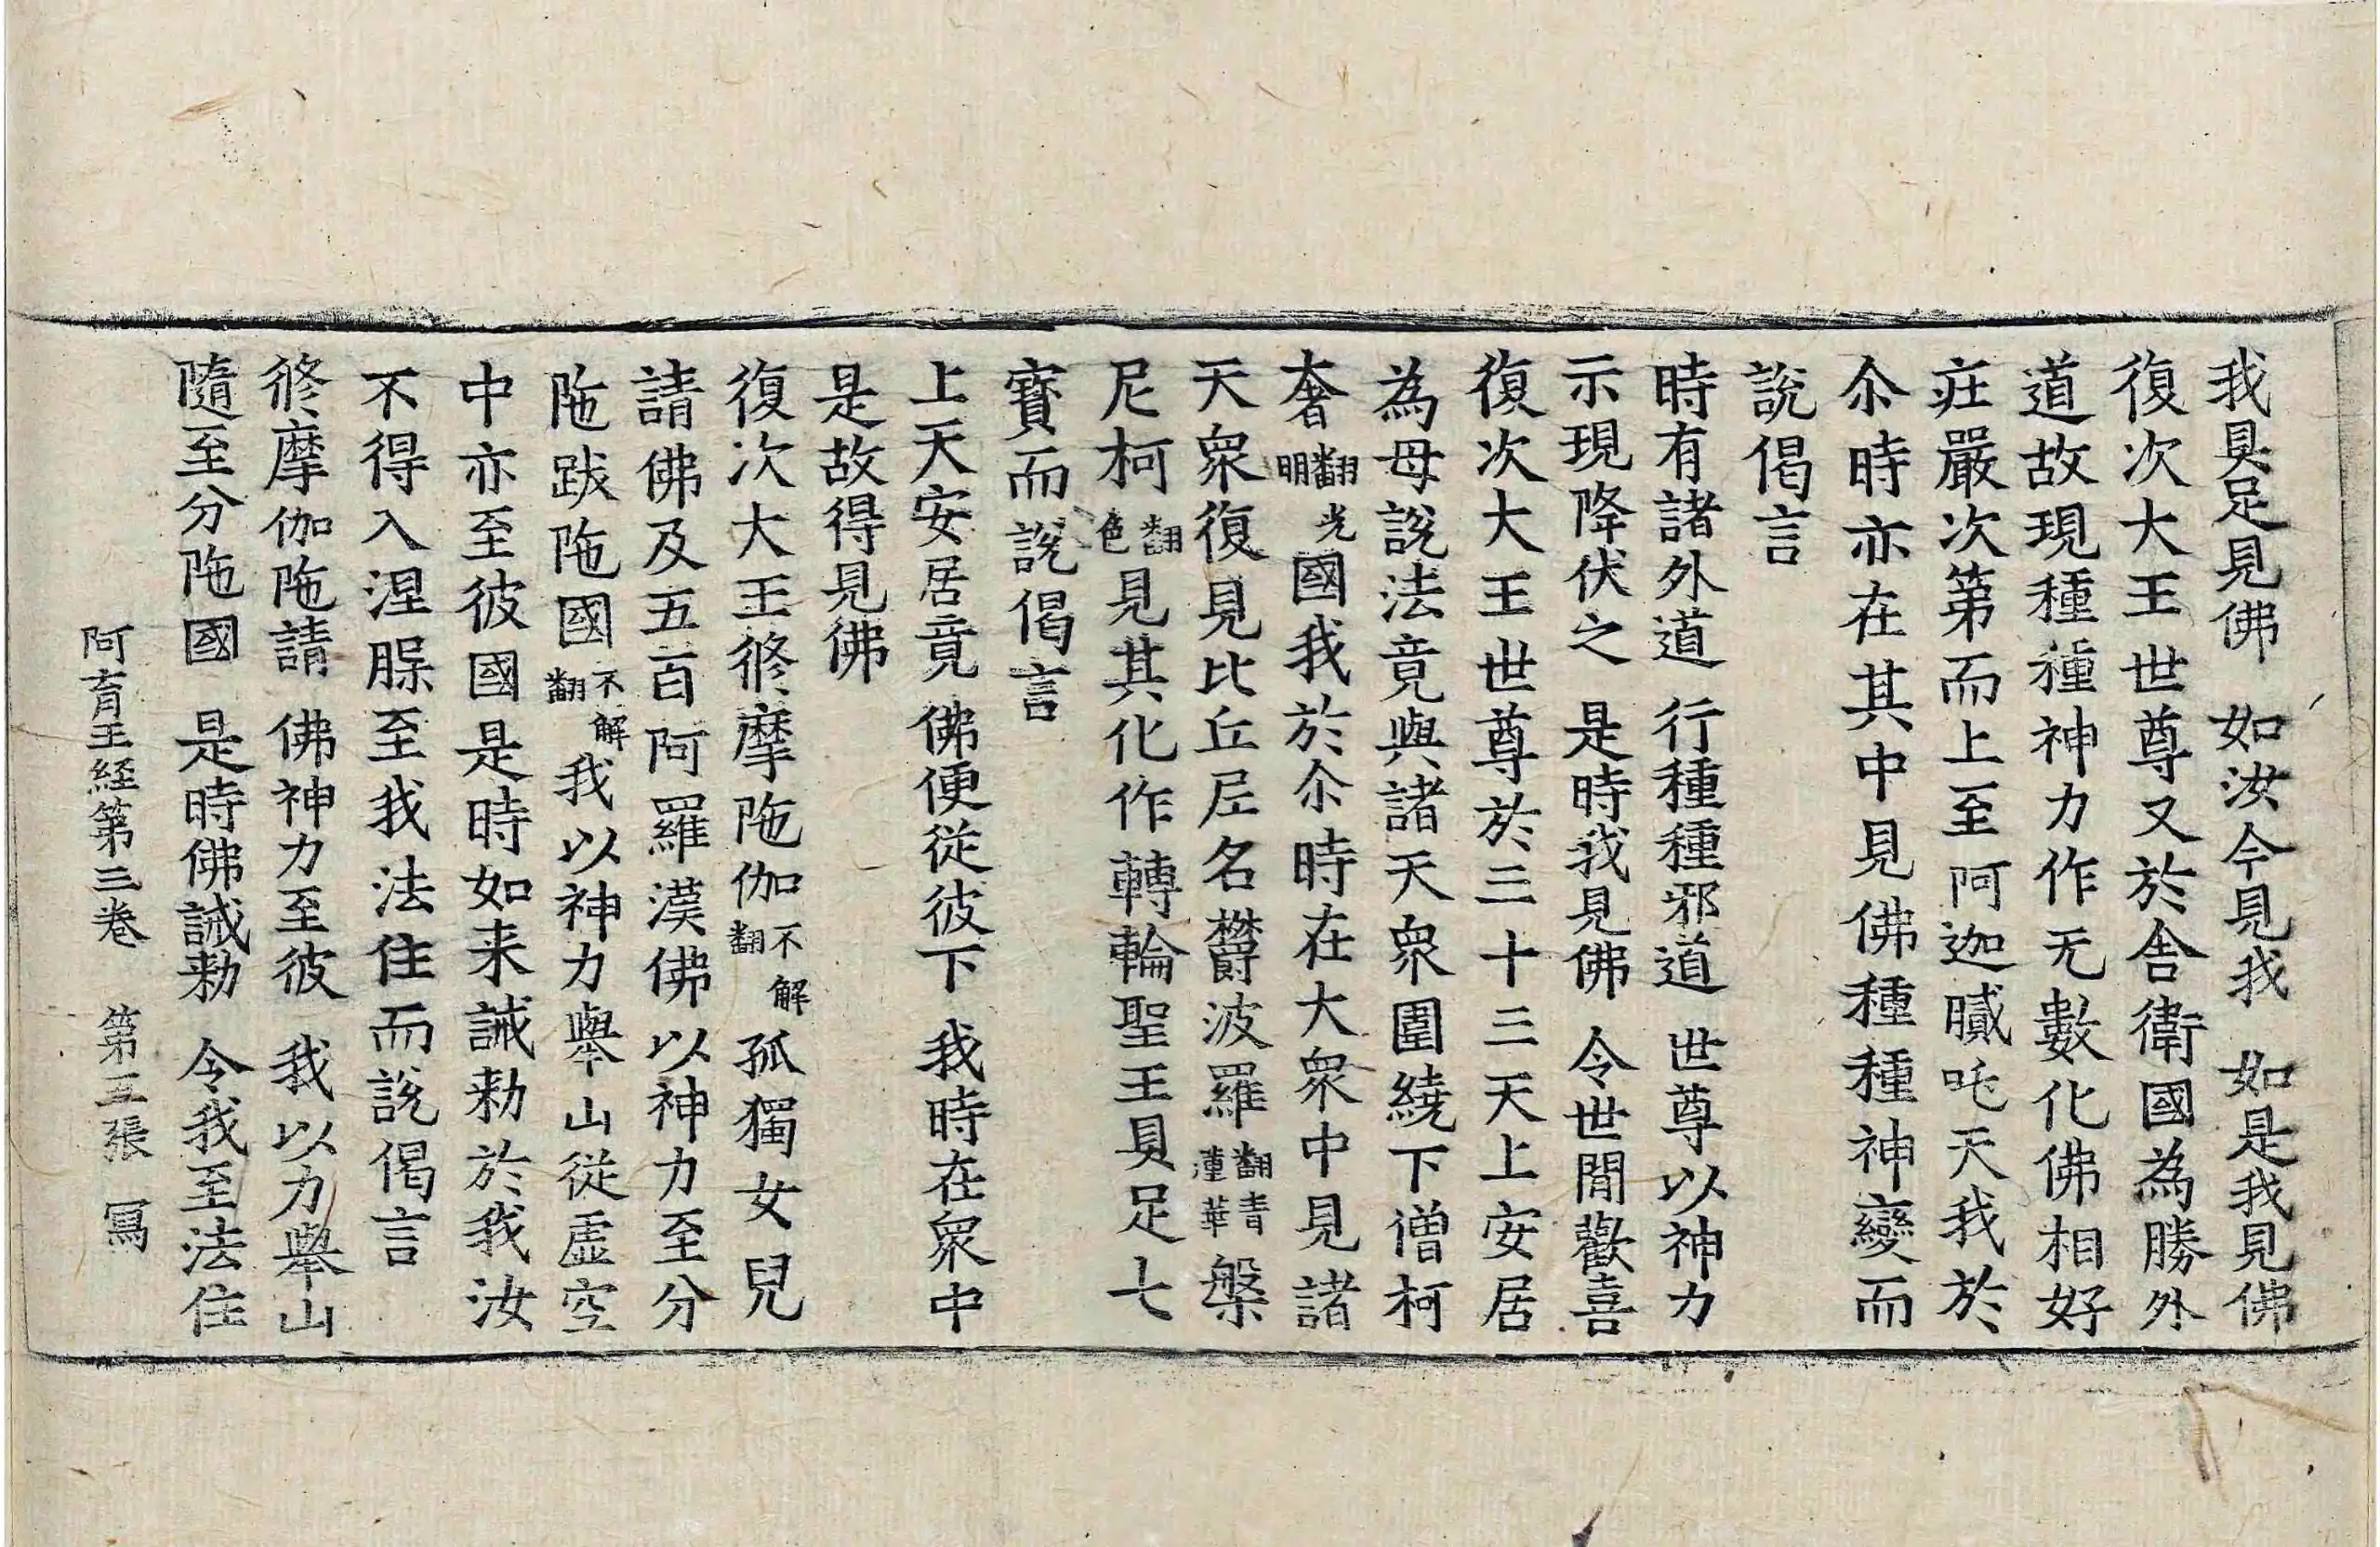 我具足見佛 如汝今見我 如是我見佛
復次大王世尊又於舎衛國為勝外
道故現種種神力作无數化佛相好
莊嚴次第而上至阿迦膩吒天我於
尒時亦在其中見佛種種神變而
說偈言
時有諸外道 行種種邪道 世尊以神力
示現降伏之 是時我見佛 令世間歡喜
復次大王世尊於三十三天上安居
為母說法竟與諸天衆圍繞下僧柯
奢翻光明國我於尒時在大衆中見諸
天衆復見比丘尼名欝波羅翻青蓮華槃
尼柯翻色見其化作轉輪聖王具足七
寳而說偈言
上天安居竟 佛便從彼下 我時在衆中
是故得見佛
復次大王修摩陁伽不解翻孤獨女兒
請佛及五百阿羅漢佛以神力至分
陁跋陁國不解翻我以神力舉山從虛空
中亦至彼國是時如来誡勑於我汝
不得入涅槃至我法住而說偈言
修摩伽陁請 佛神力至彼 我以力舉山
隨至分陁國 是時佛誡勑 令我至法住
阿育王経第三卷 第三張 冩